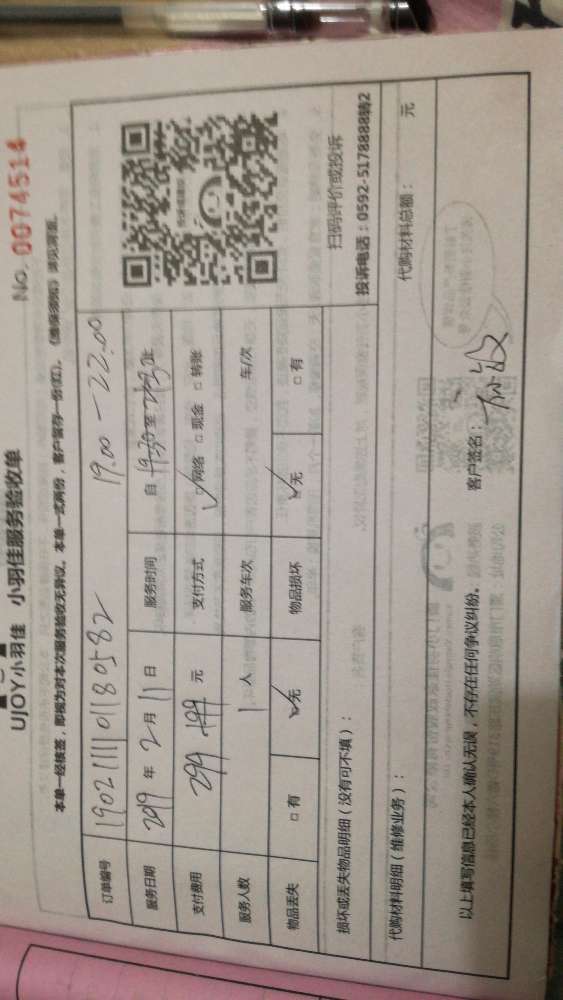 UJOY小羽佳 小羽佳服务验收单
No. 0074514
本单一经核签，即视为对本次服务验收无异议。本单一式两份，客户留存一份(红)。
订单编号 1902111101180582 19.00-22.00
服务日期 2019 年 2 月 11 日 服务时间 自 19:30 至 止
支付费用 299 199 元 支付方式 ☑网络 □现金 □转账
服务人数 1 人 服务车次 车/次
物品丢失 □有 ☑无 物品损坏 ☑无 □有
扫码评价或投诉
投诉电话：0592-5178888转2
损坏或丢失物品明细（没有可不填）：
代购材料明细（维修业务）：
代购材料总额： 元
以上填写信息已经本人确认无误，不存在任何争议纠纷。
客户签名：